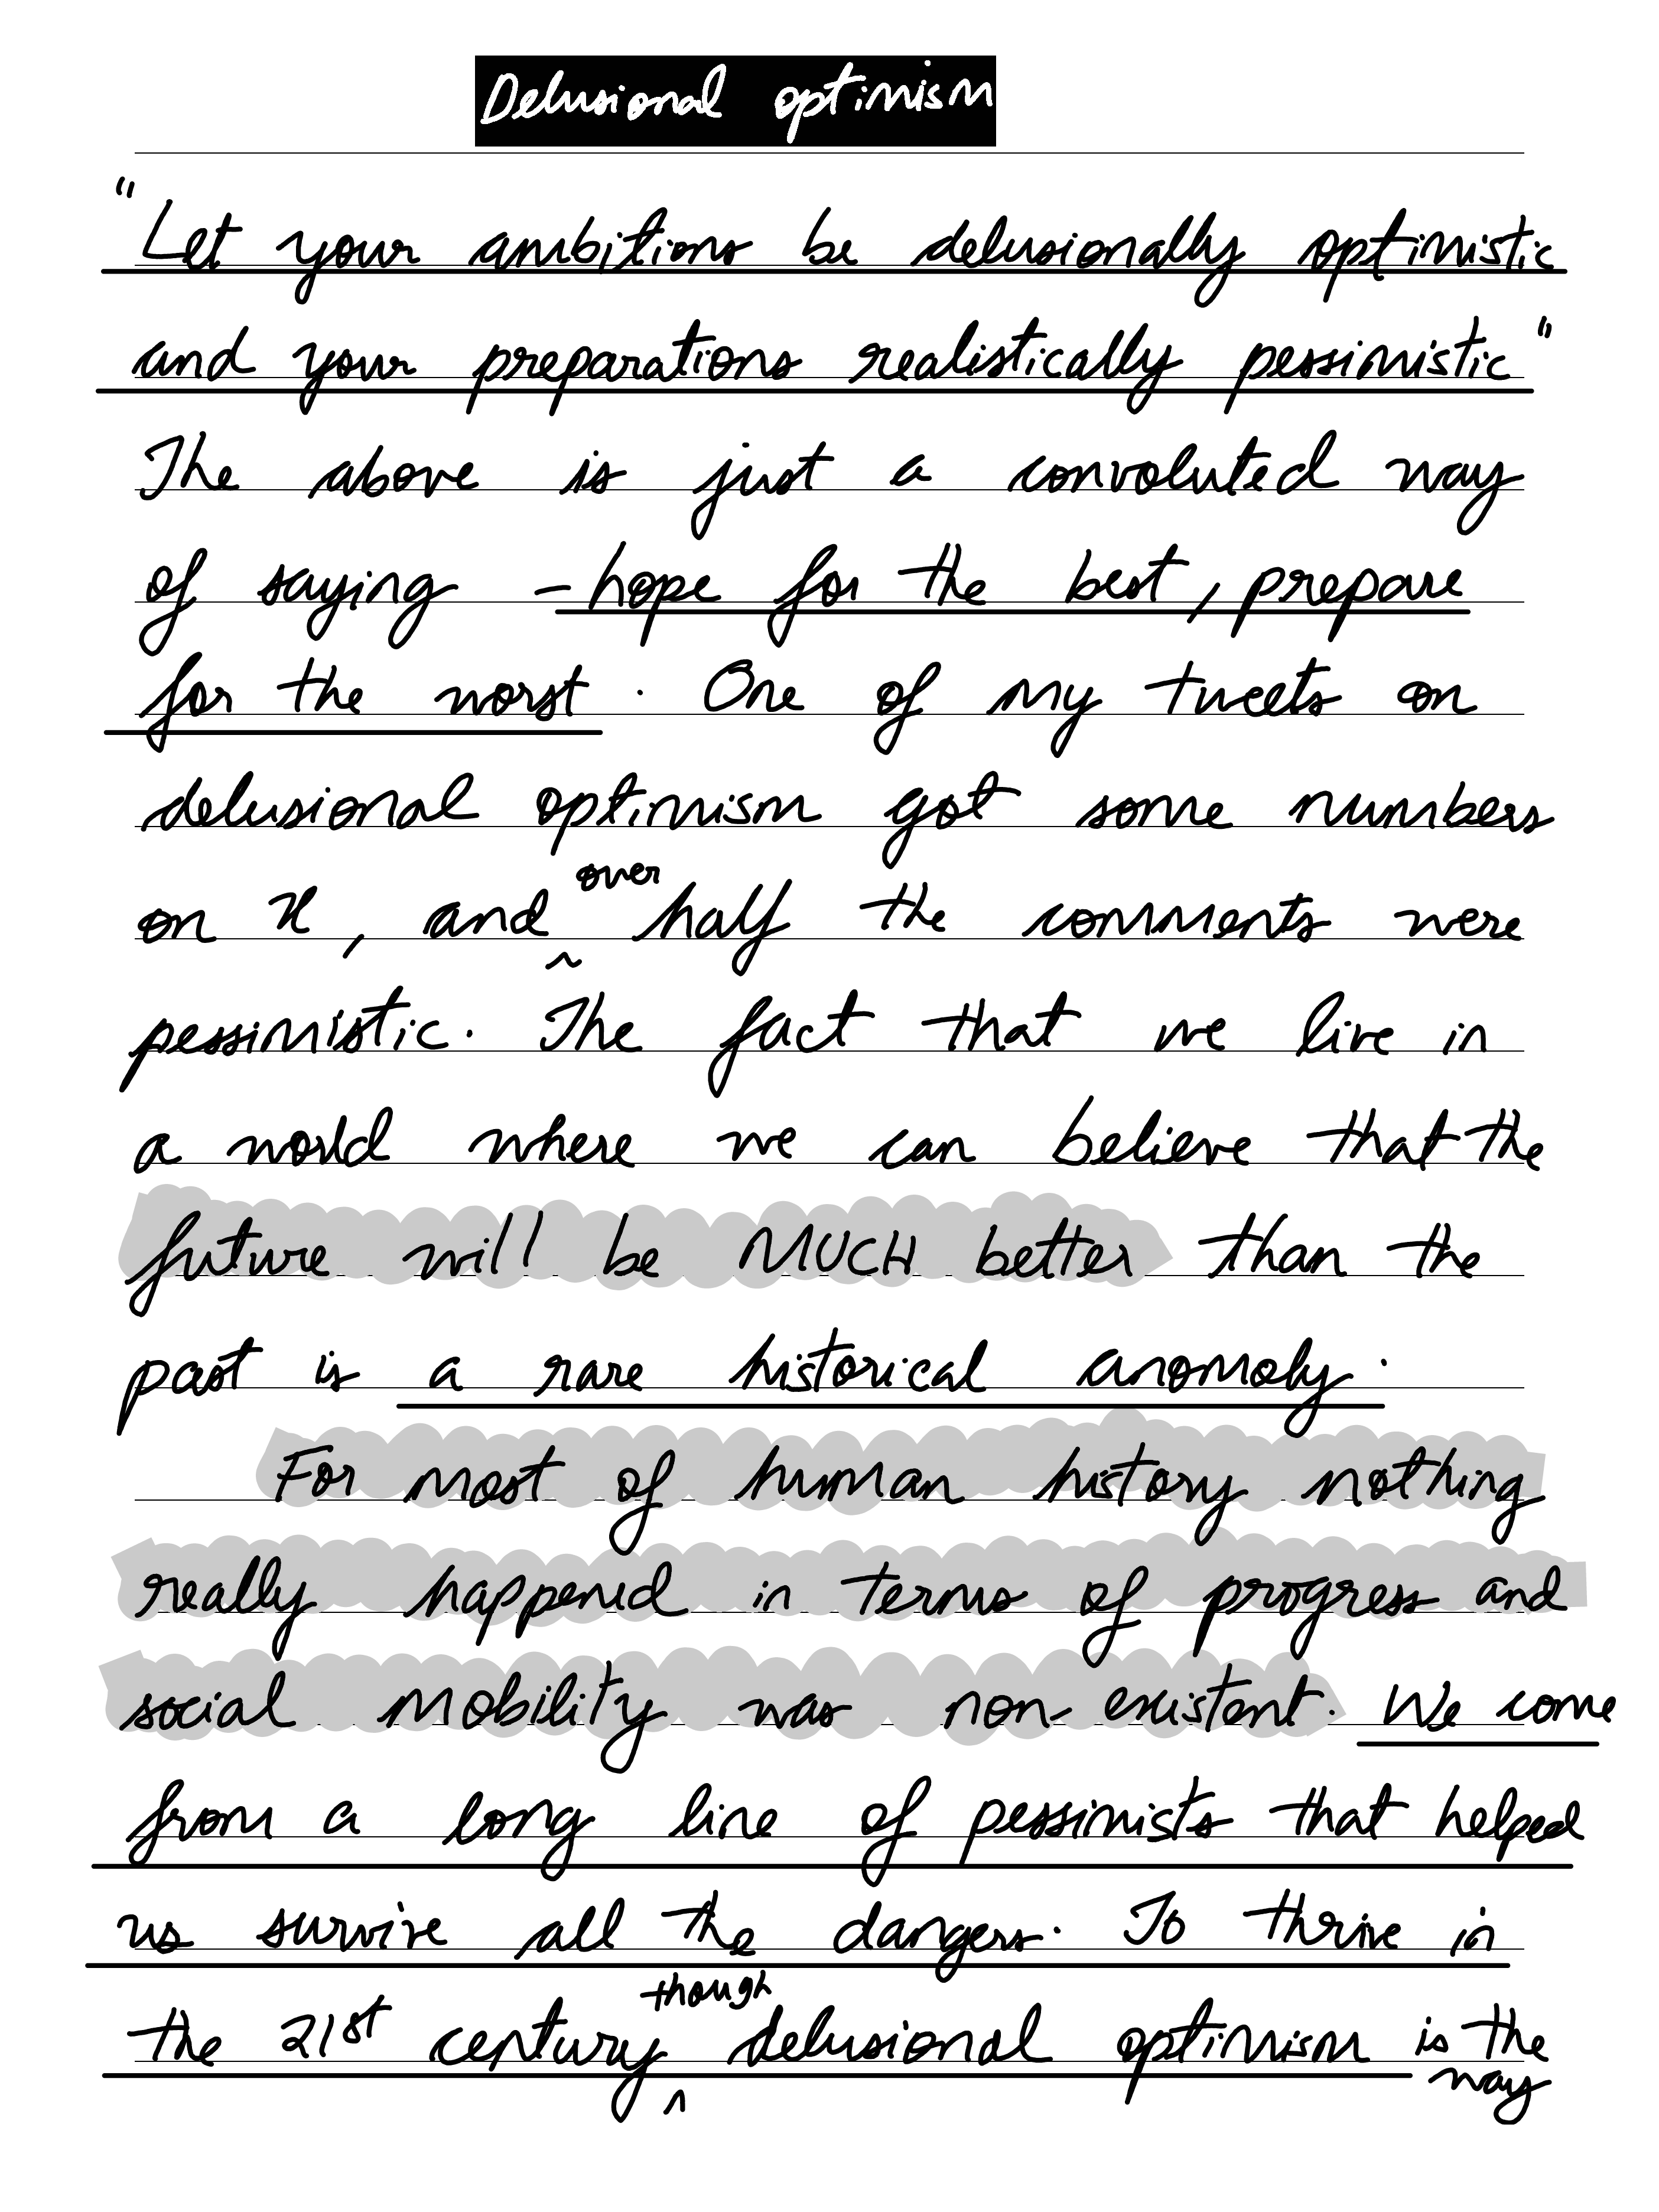 Delusional optimism
"Let your ambitions be delusionally optimistic
and your preparations realistically pessimistic"
The above is just a convoluted way
of saying - hope for the best, prepare
for the worst. One of my tweets on
delusional optimism got some numbers
on X, and over half the comments were
pessimistic. The fact that we live in
a world where we can believe that the
future will be MUCH better than the
past is a rare historical anomoly.
For most of human history nothing
really happened in terms of progress and
social mobility was non-existent. We come
from a long line of pessimists that helped
us survive all the dangers. To thrive in
the 21st century though delusional optimism is the
way